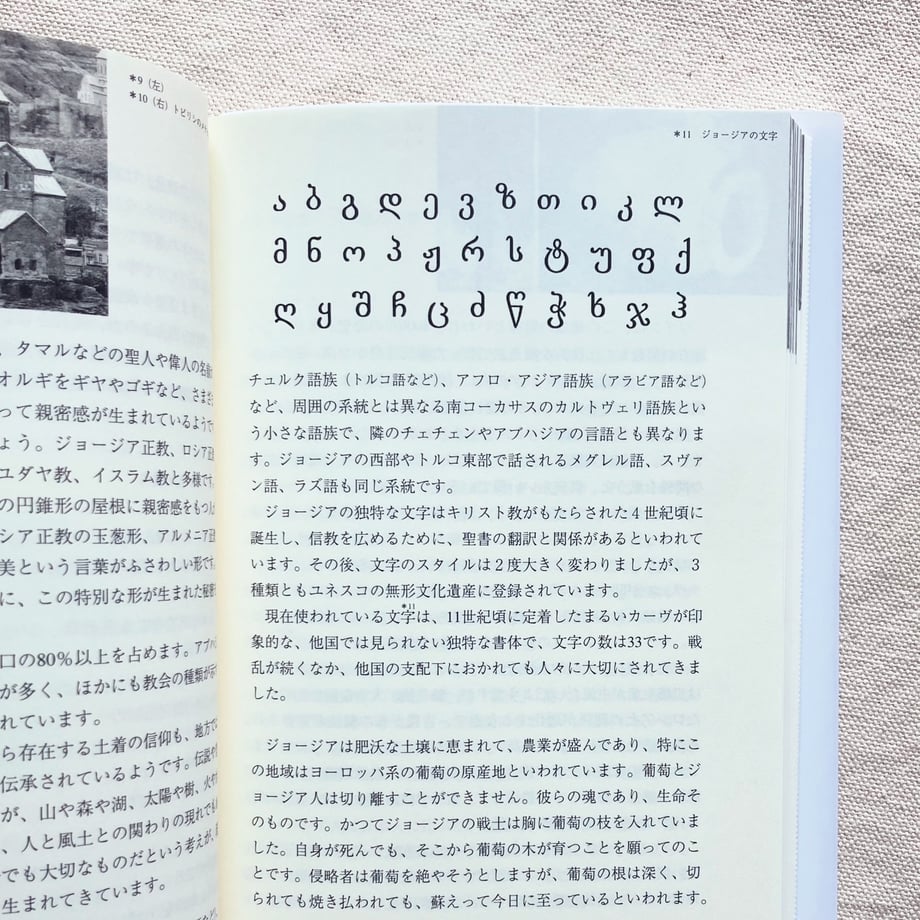 *9（左）
*10（右）トビリシのメ
、タマルなどの聖人や偉人の名前
オルギをギヤやゴギなど、さまざ
って親密感が生まれているようで
ょう。ジョージア正教、ロシア正
ユダヤ教、イスラム教と多様です
の円錐形の屋根に親密感をもつ人
シア正教の玉葱形、アルメニア正
美という言葉がふさわしい形です
に、この特別な形が生まれた秘密
口の80％以上を占めます。アブハ
が多く、ほかにも教会の種類が
れています。
ら存在する土着の信仰も、地方で
伝承されているようです。伝説や
が、山や森や湖、太陽や樹、火や
、人と風土との関わりの現れでも
でも大切なものだという考えが、
生まれてきています。
*11　ジョージアの文字
ა ბ გ დ ე ვ ზ თ ი კ ლ
მ ნ ო პ ჟ რ ს ტ უ ფ ქ
ღ ყ შ ჩ ც ძ წ ჭ ხ ჯ ჰ
チュルク語族（トルコ語など）、アフロ・アジア語族（アラビア語など）
など、周囲の系統とは異なる南コーカサスのカルトヴェリ語族とい
う小さな語族で、隣のチェチェンやアブハジアの言語とも異なりま
す。ジョージアの西部やトルコ東部で話されるメグレル語、スヴァ
ン語、ラズ語も同じ系統です。
ジョージアの独特な文字はキリスト教がもたらされた４世紀頃に
誕生し、信教を広めるために、聖書の翻訳と関係があるといわれて
います。その後、文字のスタイルは２度大きく変わりましたが、３
種類ともユネスコの無形文化遺産に登録されています。
現在使われている文字*11は、11世紀頃に定着したまるいカーヴが印
象的な、他国では見られない独特な書体で、文字の数は33です。戦
乱が続くなか、他国の支配下におかれても人々に大切にされてきま
した。
ジョージアは肥沃な土壌に恵まれて、農業が盛んであり、特にこ
の地域はヨーロッパ系の葡萄の原産地といわれています。葡萄とジ
ョージア人は切り離すことができません。彼らの魂であり、生命そ
のものです。かつてジョージアの戦士は胸に葡萄の枝を入れていま
した。自身が死んでも、そこから葡萄の木が育つことを願ってのこ
とです。侵略者は葡萄を絶やそうとしますが、葡萄の根は深く、切
られても焼き払われても、蘇えって今日に至っているといわれます。